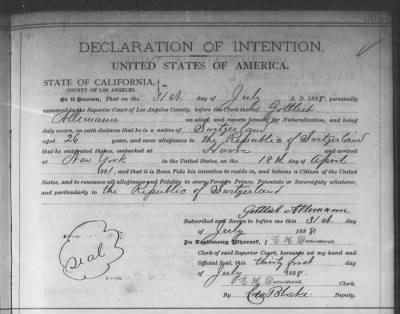 DECLARATION OF INTENTION.
UNITED STATES OF AMERICA.
STATE OF CALIFORNIA,
COUNTY OF LOS ANGELES.
ss.
Be it Known, That on the 31st day of July A. D. 1888, personally
appeared in the Superior Court of Los Angeles County, before the Clerk thereof, Gottlieb
Allemann an alien, and reports himself for Naturalization, and being
duly sworn, on oath declares that he is a native of Switzerland
aged 26 years, and owes allegiance to the Republic of Switzerland
that he emigrated thence, embarked at Havre and arrived
at New York in the United States, on the 18th day of April
1881, and that it is Bona Fide his intention to reside in, and become a Citizen of the United
States, and to renounce all allegiance and Fidelity to every Foreign Prince, Potentate or Sovereignty whatever,
and particularly to the Republic of Switzerland
Gottlieb Allemann
Subscribed and Sworn to before me this 31st day
of July 1888
In Testimony Whereof, I C. H. Dunsmoor
Clerk of said Superior Court, hereunto set my hand and
Official Seal, this thirty first day
of July 1888.
C. H. Dunsmoor Clerk.
By Deputy.
Seal